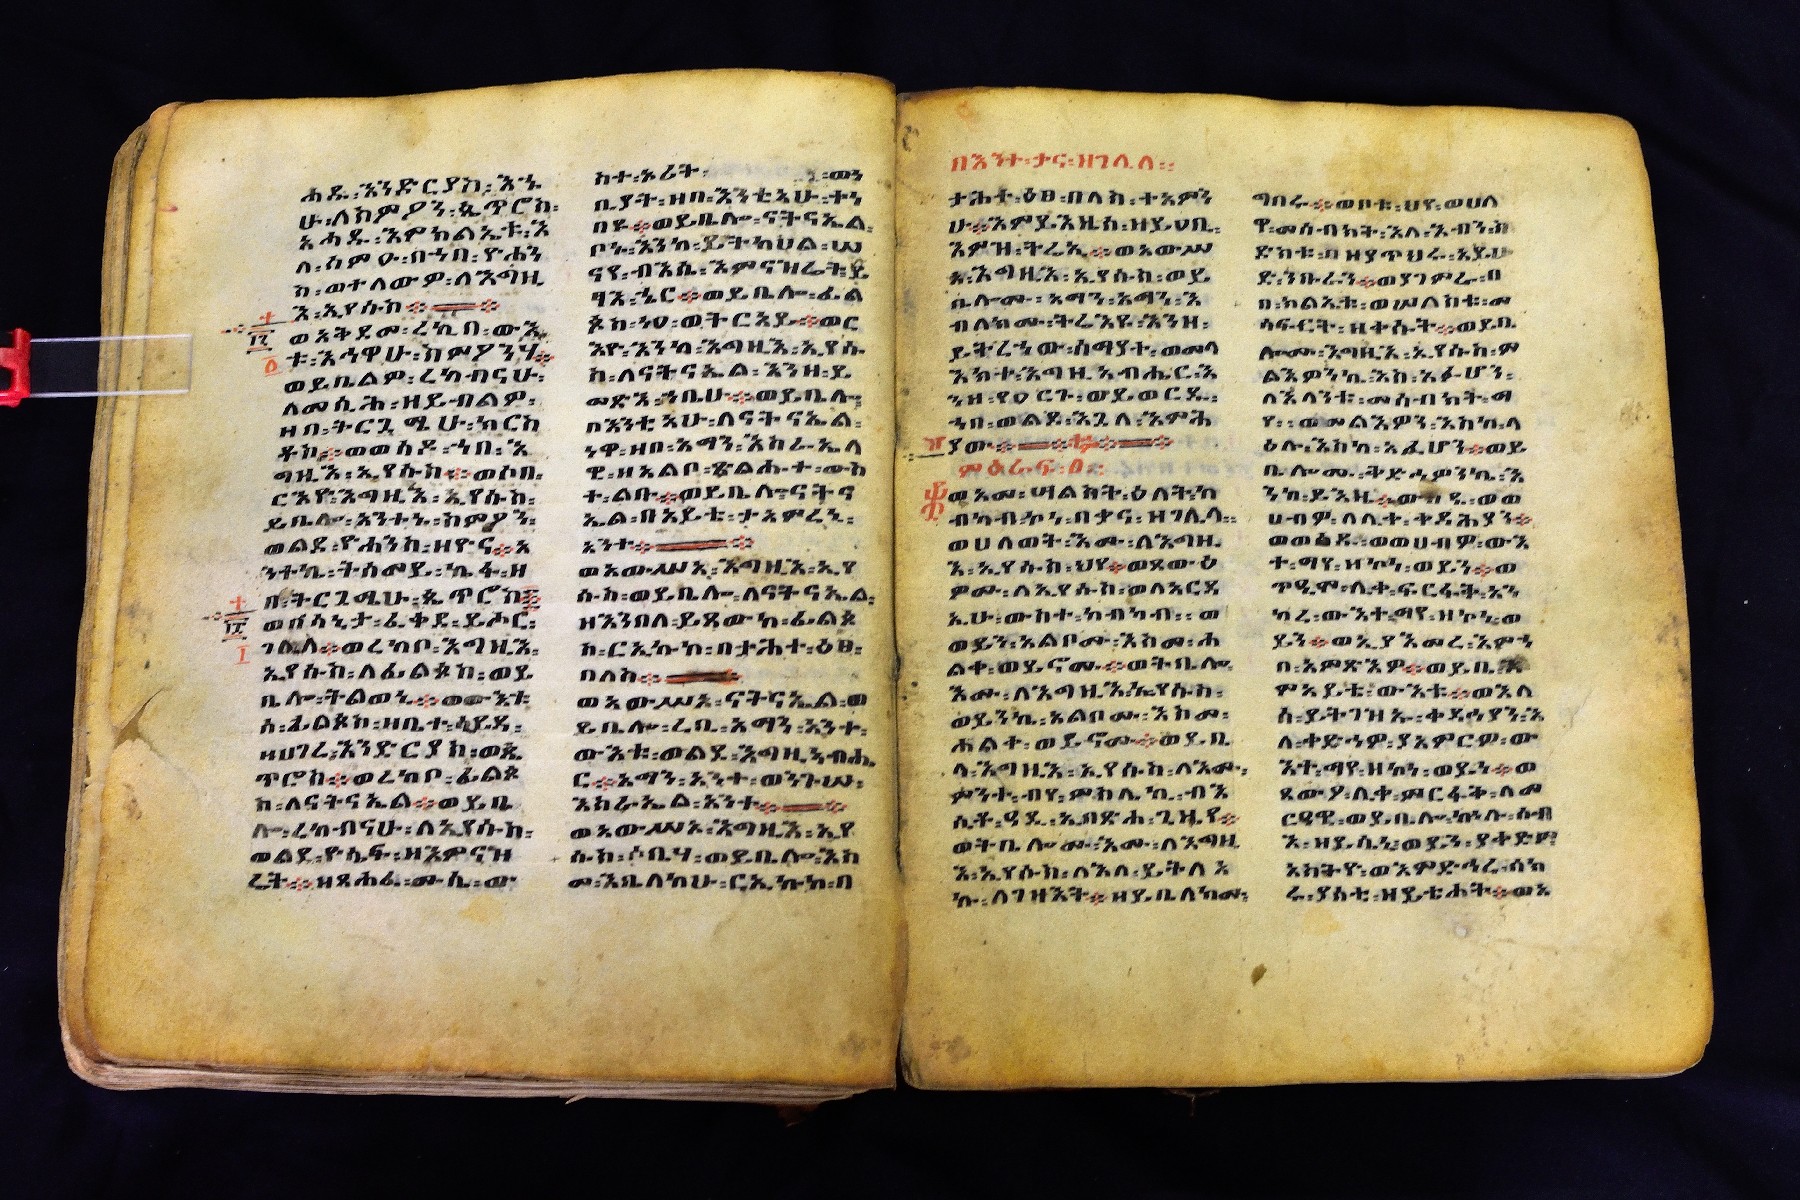 ሐዱ፡እንድርያስ፡እኁ
ሁ፡ለስምዖን፡ጴጥሮስ፡
አሐዱ፡እምክልኤቱ፡እ
ለ፡ሰምዑ፡በኀበ፡ዮሐን
ስ፡ወተለውዎ፡ለእግዚ
እ፡ኢየሱስ
ወአቅደመ፡ረኪበ፡ውእ
ቱ፡እኅዋሁ፡ስምዖንሃ
ወይቤልዎ፡ረከብናሁ፡
ለመሲሕ፡ዘይብልዎ፡
ዘበ፡ትርጓሜሁ፡ክርስ
ቶስ፡ወወሰዶ፡ኀበ፡እ
ግዚእ፡ኢየሱስ፡ወሶበ፡
ርእዮ፡እግዚእ፡ኢየሱስ፡
ይቤሎ፡አንተኑ፡ስምዖን፡
ወልደ፡ዮሐንስ፡ዘዮና፡አ
ንተኬ፡ትሰመይ፡ኬፋ፡ዘ
በ፡ትርጓሜሁ፡ጴጥሮስ
ወበሳኒታ፡ፈቀደ፡ይሖር፡
ገሊላ፡ወረከቦ፡እግዚእ፡
ኢየሱስ፡ለፊልጶስ፡ወይ
ቤሎ፡ትልወኒ፡ወውእቱ
ሰ፡ፊልጶስ፡ዘቤተ፡ሳይዳ፡
ዘሀገረ፡እንድርያስ፡ወጴ
ጥሮስ፡ወረከቦ፡ፊልጶ
ስ፡ለናትናኤል፡ወይቤ
ሎ፡ረከብናሁ፡ለኢየሱስ፡
ወልደ፡ዮሴፍ፡ዘእምናዝ
ሬት፡ዘጸሐፈ፡ሙሴ፡ው
ስተ፡ኦሪት፡ ፡ወነ
ቢያት፡ዘበ፡እንቲአሁ፡ተነ
በዩ፡ወይቤሎ፡ናትናኤል፡
ቦኑ፡እንከ፡ይትከሀል፡ሠ
ናየ፡ብእሲ፡እምናዝሬት፡ይ
ፃእ፡ኄር፡ወይቤሎ፡ፊል
ጶስ፡ነዐ፡ወትርአይ፡ወር
እዮ፡እንከ፡እግዚእ፡ኢየሱ
ስ፡ለናትናኤል፡እንዘ፡ይ
መጽእ፡ኀቤሁ፡ወይቤሎ፡
በእንቲአሁ፡ለናትናኤል፡
ነዋ፡ዘበ፡አማን፡እስራኤላ
ዊ፡ዘአልቦ፡ጽልሑተ፡ውስ
ተ፡ልቡ፡ወይቤሎ፡ናትና
ኤል፡በአይቴ፡ታአምረኒ፡
አንተ
ወአውሥአ፡እግዚእ፡ኢየ
ሱስ፡ወይቤሎ፡ለናትናኤል፡
ዘእንበለ፡ይጸውዑከ፡ፊልጶ
ስ፡ርኢኩከ፡በታሕተ፡ዕፀ፡
በለስ
ወአውሥአ፡ናትናኤል፡ወ
ይቤሎ፡ረቢ፡አማን፡አንተ፡
ውእቱ፡ወልደ፡እግዚአብሔ
ር፡አማን፡አንተ፡ወንጉሠ፡
እስራኤል፡አንተ
ወአውሥአ፡እግዚእ፡ኢየ
ሱስ፡ሶቤሃ፡ወይቤሎ፡እስ
መ፡እቤለከሁ፡ርኢኩከ፡በ
በእንተ፡ቃና፡ዘገሊላ፡፡
ታሕተ፡ዕፀ፡በለስ፡ተአምን
ሁ፡እምይእዜሰ፡ዘይዐቢ፡
እምዝ፡ትሬኢ፡ወአውሥ
አ፡እግዚእ፡ኢየሱስ፡ወይ
ቤሎሙ፡አማን፡አማን፡እ
ብለክሙ፡ትሬእዩ፡እንዘ፡
ይትረኀው፡ሰማያት፡ወመላ
እክተ፡እግዚአብሔር፡እ
ንዘ፡የዐርጉ፡ወይወርዱ፡
ኀበ፡ወልደ፡እጓለ፡እምሕ
ያው
ምዕራፍ፡፬፡
ወአመ፡ሣልስት፡ዕለት፡ከ
ብካብ፡ኮነ፡በቃና፡ዘገሊላ፡፡
ወሀለወት፡እሙ፡ለእግዚ
እ፡ኢየሱስ፡ህየ፡ወጸውዕ
ዎሙ፡ለኢየሱስ፡ወለአርዳ
ኢሁ፡ውስተ፡ከብካብ፡፡ወ
ወይን፡አልቦሙ፡እስመ፡ሐ
ልቀ፡ወይኖሙ፡ወትቤሎ፡
እሙ፡ለእግዚእ፡ኢየሱስ፡
ወይንኬ፡አልቦሙ፡እስመ፡
ሐልቀ፡ወይኖሙ፡ወይቤ
ላ፡እግዚእ፡ኢየሱስ፡ለእሙ፡
ምንተ፡ብየ፡ምስሌኪ፡ብእ
ሲቶ፡ዓዲ፡ኢበጽሐ፡ጊዜየ
ወትቤሎሙ፡እሙ፡ለእግዚ
እ፡ኢየሱስ፡ለእለ፡ይትለአ
ኩ፡ለገዝእት፡ዘይቤለክሙ፡
ግበሩ፡ወቦቱ፡ህየ፡ወሀለ
ዋ፡መሳብክት፡እለ፡እብን፡ስ
ድስቱ፡በዘያጥህሩ፡አይሁ
ድ፡ንኩራን፡ወያገምራ፡በ
በ፡ክልኤቱ፡ወሠለስቱ፡መ
ሳፍርት፡ዘቀሱት፡ወይቤ
ሎሙ፡እግዚእ፡ኢየሱስ፡ም
ልእዎንኬ፡እስከ፡አፉሆን፡
ለእላንቱ፡መሳብክት፡ማ
የ፡፡ወመልእዎን፡እስከ፡ላ
ዕሉ፡እስከ፡አፈሆን፡ወይ
ቤሎሙ፡ቅድሕዎንኬ፡እ
ንከ፡ይእዜ፡ውስዱ፡ወወ
ሀብዎ፡ለሊቀ፡ቀዳሕያን
ወወፅዱ፡ወወሀብዎ፡ውእ
ተ፡ማየ፡ዘኮነ፡ወይነ፡ወ
ጥዒሞ፡ሊቀ፡ፍርፋት፡አን
ከረ፡ውእተ፡ማየ፡ዘኮነ፡ወ
ይነ፡ወኢያእመረ፡እምኀ
በ፡አምጽእዎ፡ወይቤ፡እ
ምአይቴ፡ውእቱ፡ወእለ
ሰ፡ይትገዝኡ፡ቀዳሕያን፡እ
ለ፡ቀድሑዎ፡ያአምርዎ፡ው
እተ፡ማየ፡ዘኮነ፡ወይነ፡ወ
ጸውዖ፡ሊቀ፡ምርፋቅ፡ለመ
ርዓዊ፡ወይቤሎ፡ኵሉ፡ሰብ
እ፡ዘይሴኒ፡ወይነ፡ያቀድም
አስትዮ፡ወእምድኅረ፡ሰክ
ሩ፡ያሰቲ፡ዘይቴሐት፡ወአ